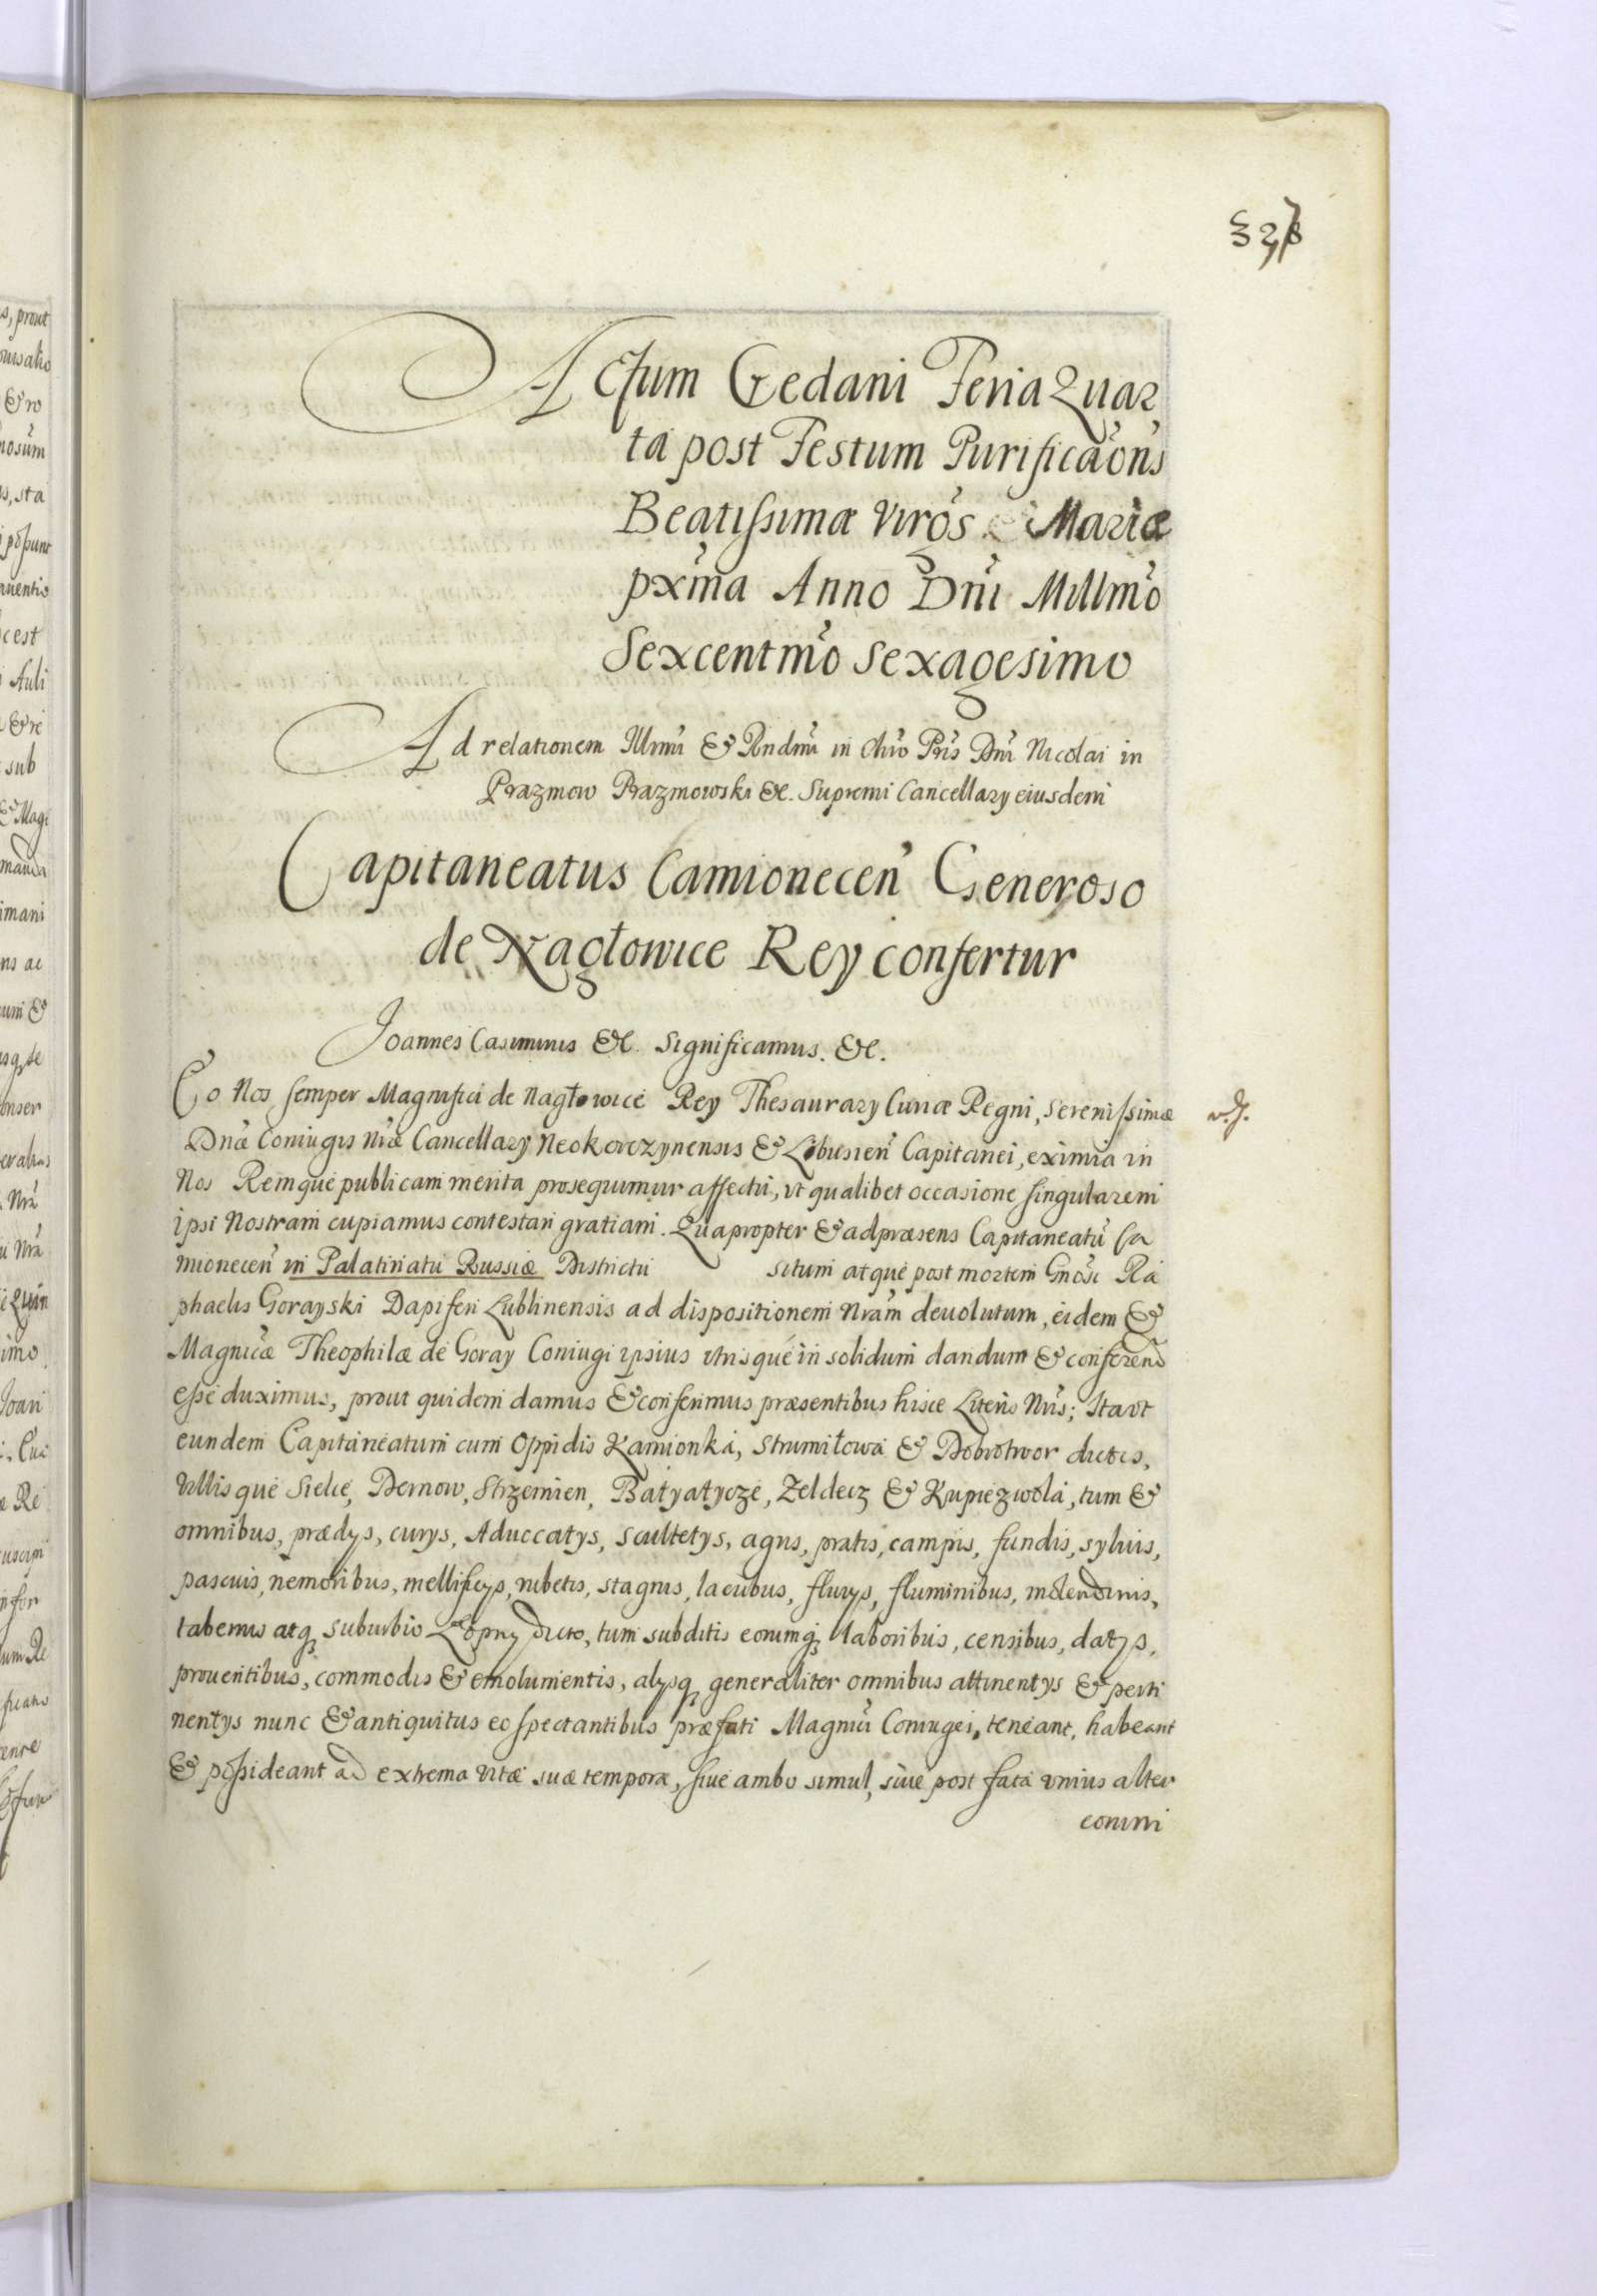 Actum Gedani Feria Quar
ta post Festum Purificaõns
Beatissimæ Virgs Mariæ
pxma Anno Dni Millmo
Sexcentmo sexagesimo
Ad relationem Illmi & Rndmi in Chro Pris Dni Nicolai in
Prazmow Prazmowski &c. Supremi Cancellary eiusdem
Capitaneatus Camionecen Generoso
de Nagłowice Rey confertur
Joannes Casimirus &c. Significamus. &c.
Eo Nos semper Magnifici de Nagłowice Rey Thesaurary Curiæ Regni, Serenissimæ
Dnæ Coniugis Nræ Cancellary Neokorczynensis & Libusien Capitanei, eximia in
Nos Remque publicam merita prosequimur affectu, vt qualibet occasione singularem
ipsi Nostram cupiamus contestari gratiam. Quapropter & ad præsens Capitaneatũ Ca
mionecen in Palatinatu Russiæ Districtu situm atque post mortem Gnosi Ra
phaelis Gorayski Dapiferi Lublinensis ad dispositionem Nram deuolutum, eidem &
Magnicæ Theophilæ de Goray Coniugi ipsius vtrisque in solidum dandum & conferend
esse duximus, prout quidem damus & conferimus præsentibus hisce Literis Nris; Ita vt
eundem Capitaneatum cum Oppidis Kamionka, Strumiłowa & Dobrotwor dictis,
Villisque Sielie, Dernow, Strzemien, Batyatycze, Zeldecz & Kupiezwola, tum &
omnibus, prædys, curys, Aduocatys, Scultetys, agris, pratis, campis, fundis, syluis,
pascuis, nemoribus, mellificys, rubetis, stagnis, lacubus, fluuys, fluminibus, molendinis,
tabernis atq suburbio Łopny dicto, tum subditis eorumq laboribus, censibus, datys,
prouentibus, commodis & emolumentis, alysq generaliter omnibus attinentys & perti
nentys nunc & antiquitus eo spectantibus præfati Magnici Coniuges, teneant, habeant
& possideant ad extrema vitæ suæ tempora, siue ambo simul, siue post fata vnius alter
comni